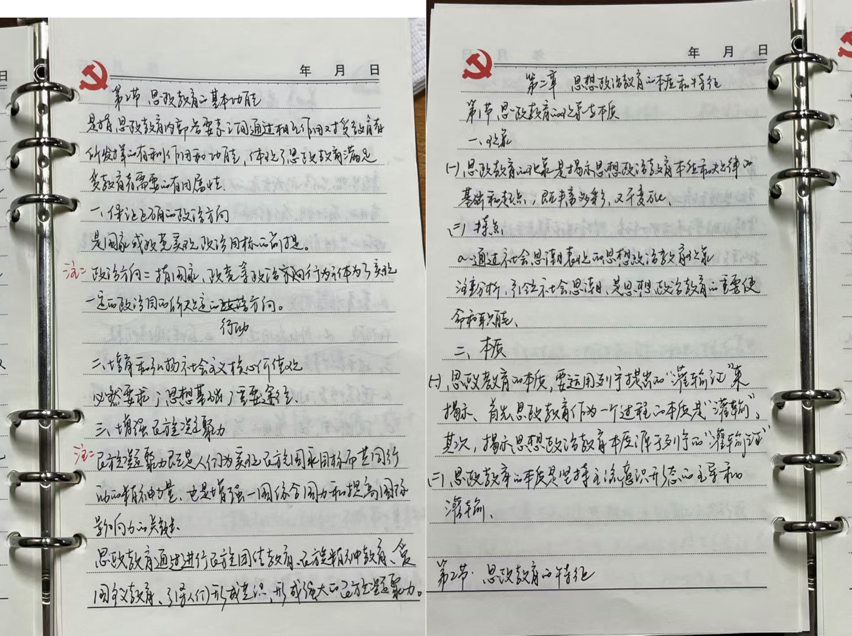 年 月 日
第2节 思政教育的基本功能
是指思政教育内部各要素之间通过相互作用对受教育者
所发挥的有利作用和功能,体现了思政教育满足
受教育者需要的有用属性.
一、保证正确的政治方向
是国家或政党实现政治目标的前提。
注:政治方向:指国家、政党等政治家的行为主体为了实现
一定的政治目的所决定的方向。
行动
二、培育和弘扬社会主义核心价值观
必然要求;思想基础;重要途径.
三、增强民族凝聚力
注:民族凝聚力既是人们为实现民族国家目标而共同行
动的精神力量,也是增强一国综合国力和提高国际
影响力的关键.
思政教育通过进行民族团结教育、民族精神教育、爱
国主义教育,引导人们形成共识,形成强大的民族凝聚力。
年 月 日
第二章 思想政治教育的本质和特征
第1节 思政教育的现象与本质
一、现象
(一)、思政教育的现象是揭示思想政治教育本质和规律的
基础和起点,既丰富多彩,又千变万化、
(二) 特点
a 通过社会思潮表现的思想政治教育现象
准分析,引领社会思潮,是思想政治教育的重要使
命和职能、
二、本质
(一)、思政教育的本质,要运用列宁提出的“灌输论”来
揭示、首先思政教育作为一个过程的本质是“灌输”,
其次,揭示思想政治教育本质源于列宁的“灌输论”
(二)、思政教育的本质是坚持主流意识形态的主导和
灌输、
第2节·思政教育的特征